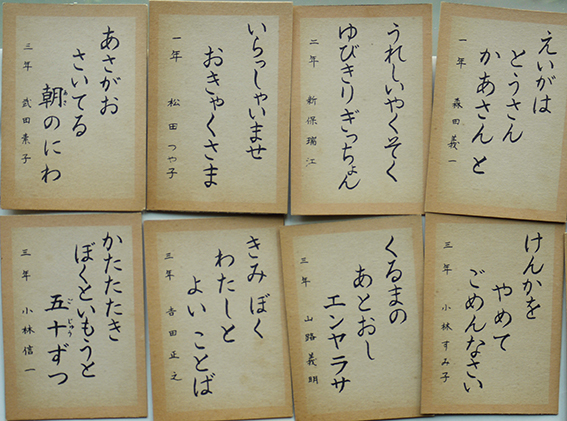 えいがは
とうさん
かあさんと
一年 森田義一
うれしいやくそく
ゆびきりぎっちょん
二年 新保瑞江
いらっしゃいませ
おきゃくさま
一年 松田つや子
あさがお
さいてる
朝のにわ
三年 武田景子
けんかを
やめて
ごめんなさい
三年 小林すみ子
くるまの
あとおし
エンヤラサ
三年 山路義明
きみぼく
わたしと
よいことば
三年 吉田正之
かたたたき
ぼくといもうと
五十ずつ
三年 小林信一